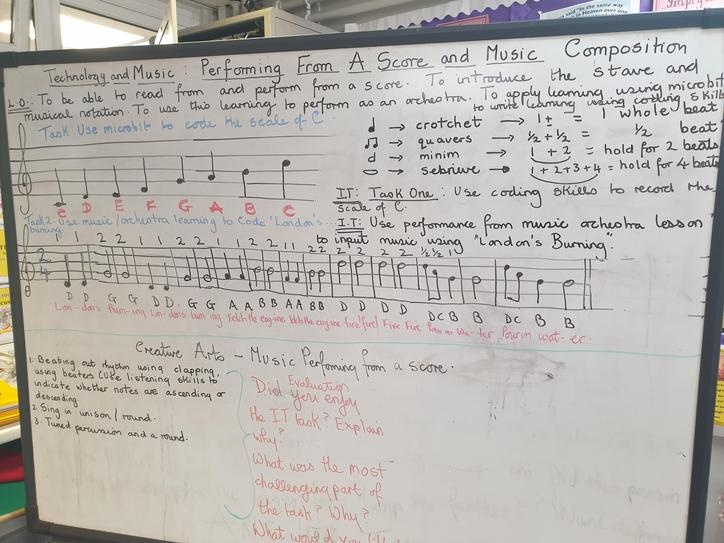 said "In the same way
in Heaven over one
Technology and Music : Performing From A Score and Music Composition
L.O.: To be able to read from and perform from a score. To introduce the stave and
musical notation. To use this learning to perform as an orchestra. To apply learning using microbit
to write learning using coding skills
Task Use microbit to code the scale of C.
crotchet → 1 = 1 whole beat
quavers → ½ + ½ = ½ beat
minim → 1 + 2 = hold for 2 beats
sebrive → 1 + 2 + 3 + 4 = hold for 4 beats
C D E F G A B C
IT: Task One : Use coding skills to record the
scale of C.
Task 2: Use music/orchestra learning to code 'London's...
burning.
I.T: Use performance from music orchestra lesson
to input music using "London's Burning".
2 2 1 1 2 2 1 1 2 2 1 1 2 2 2 2 2 2 ½ ½ 1
2
4
D D G G D D G G A A B B A A B B D D D D DC B B DC B B
Lon-don's Burn-ing Lon-dons burn ing Fetch the engine fetch the engine fire fire Fire Fire Pour on Wa-ter Pour on wat-er.
Creative Arts - Music Performing from a score.
1. Beating out rhythm using clapping,
using beaters (use listening skills to
indicate whether notes are ascending or
descending.
2 Sing in unison / round.
3. Tuned percussion and a round.
Evaluation
Did you enjoy
the I.T task? Explain
why?
What was the most
challenging part of
the task? Why?
What would you